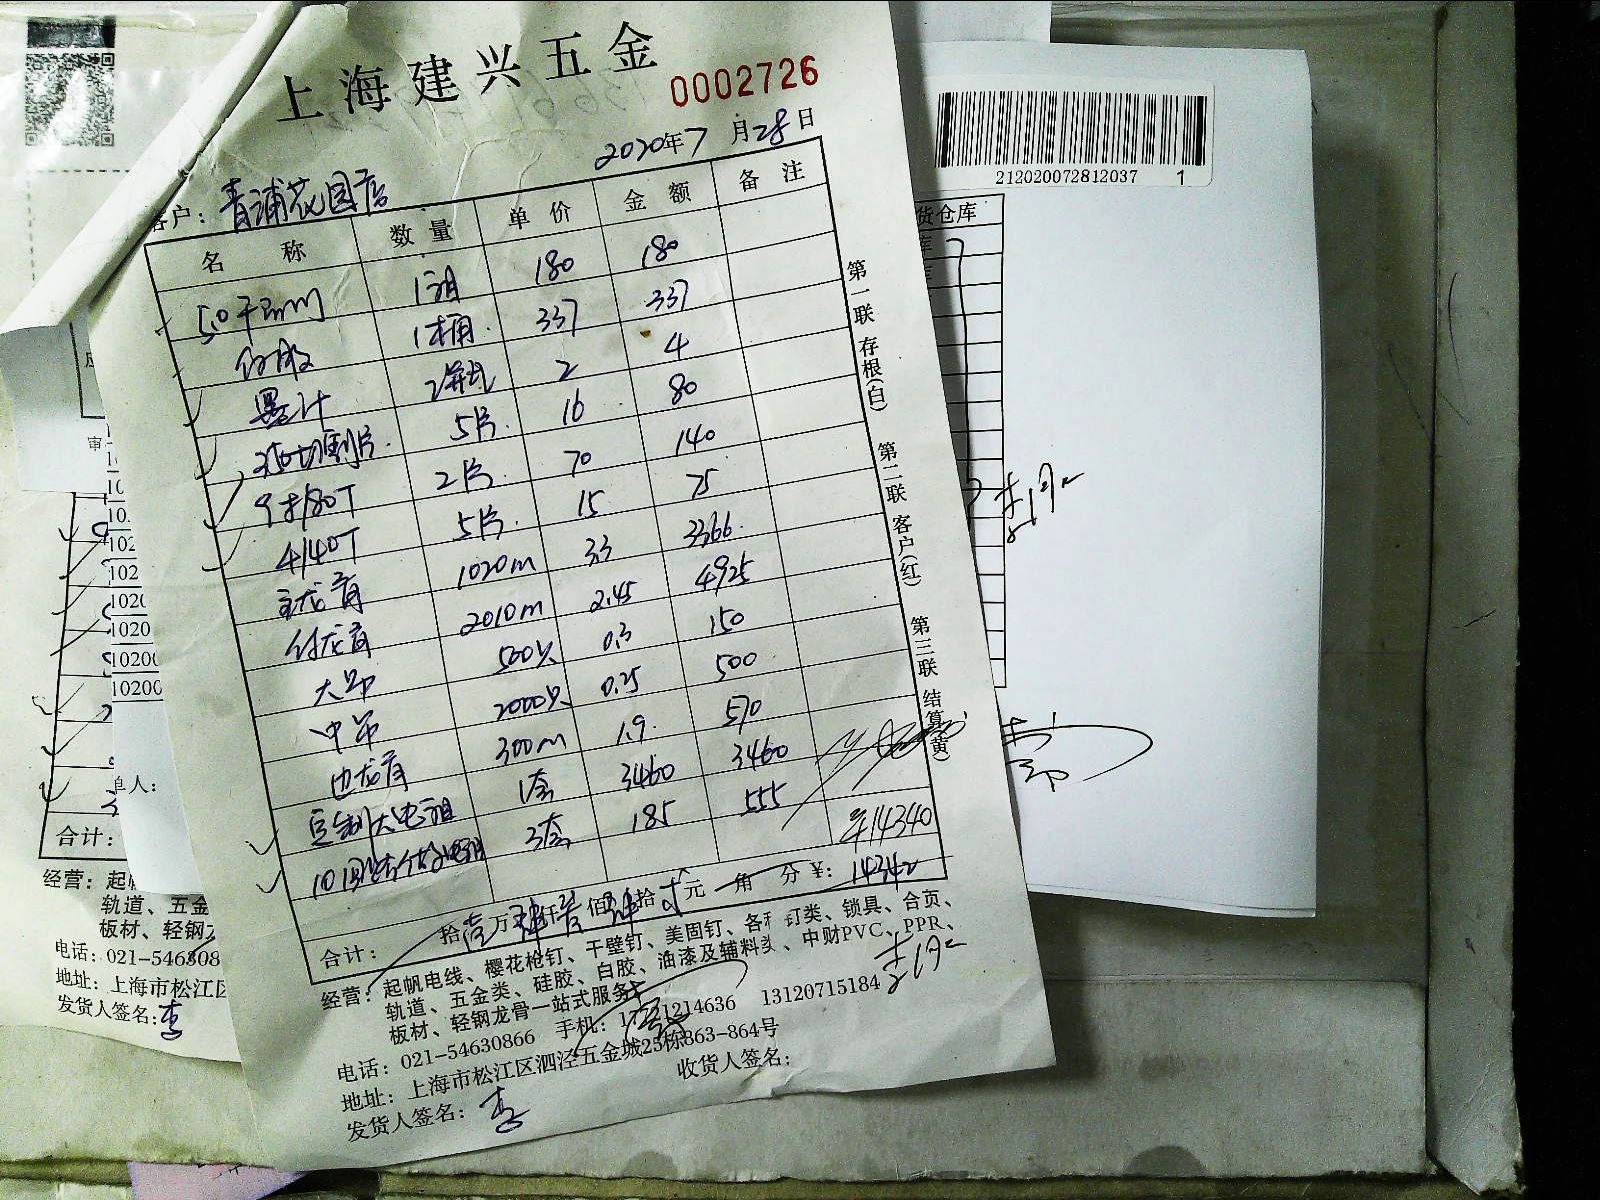 上海建兴五金
0002726
2020年7月28日
客户：青浦花园店
名 称 数 量 单 价 金 额 备 注
1组 180 180
1桶 337 337
墨汁 2瓶 2 4
350切割片 5片 16 80
9寸180T 2片 70 140
4140T 5片 15 75
主龙骨 1020m 3.3 3366
付龙骨 2010m 2.45 4925
大吊 500只 0.3 150
中吊 2000只 0.25 500
边龙骨 300m 1.9 570
定制大电箱 1套 3460 3460
10回路 电箱 3套 185 555
¥14340
合计： 拾壹万肆仟叁佰肆拾贰元 角 分 ¥: 14342
第一联 存根(白) 第二联 客户(红) 第三联 结算(黄)
经营：起帆电线、樱花枪钉、干壁钉、美固钉、各种钉类、锁具、合页、
轨道、五金类、硅胶、白胶、油漆及辅料类、中财PVC、PPR、
板材、轻钢龙骨一站式服务
电话：021-54630866 手机： 13120715184
地址：上海市松江区泗泾五金城25栋863-864号
发货人签名：李 收货人签名：
212020072812037 1
货仓库
审
10200
10200
单人：
合计：
经营：起帆
轨道、五金
板材、轻钢龙
电话：021-546308
地址：上海市松江区
发货人签名：李